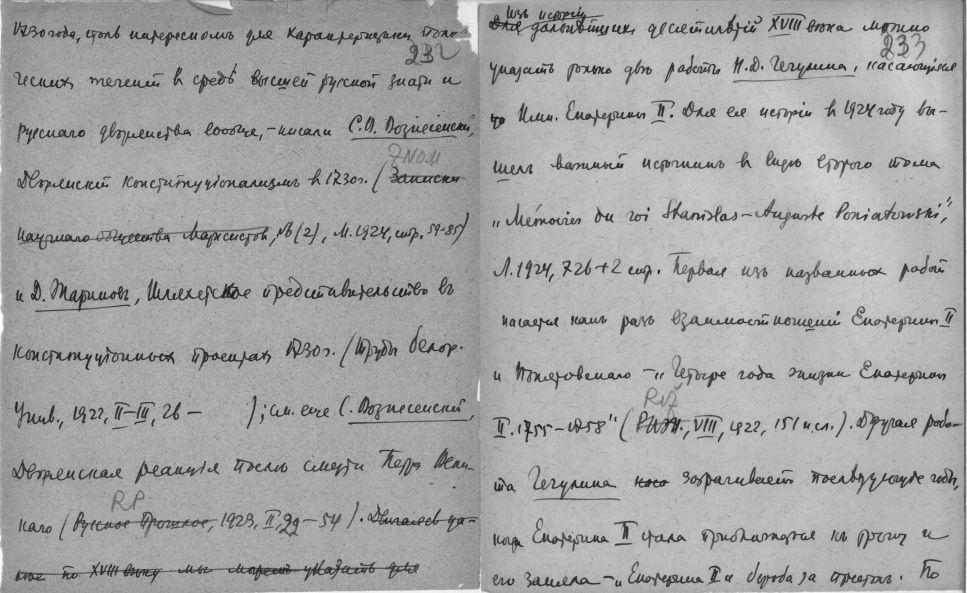 1730 года, столь интересномъ для характеристики поли-
232
ческих течений въ средѣ высшей русской знати и
русскаго дворянства вообще, – писали С.О. Вознесенский,
ZNOM
Дворянскій конституціонализмъ в 1730 г. (Записки
научнаго общества Марксистов, № (2), М. 1924, стр. 59–85)
и Д. Жариновъ, Шляхетское представительство въ
конституціонных проектах 1730 г. (Труды белор.
Унив., 1922, II–III, 26 – ); см. еще С. Вознесенский,
Дворянская реакція послѣ смерти Петра Вели-
RP
каго (Русское Прошлое, 1923, II, 29–54). Двигаясь да-
лѣе по XVIII вѣку мы можем указать для
изъ исторіи
Для дальнѣйших десятилѣтій XVIII вѣка можно
233
указать только двѣ работы Н.Д. Чечулина, касающіяся
Имп. Екатерины II. Для ея исторіи в 1924 году вы-
шелъ важный источникъ в видѣ второго тома
„Mémoires du roi Stanislas–Auguste Poniatowski",
Л. 1924, 726+2 стр. Первая изъ названных работ
касается какъ разъ взаимоотношеній Екатерины II
и Понятовскаго – „Четыре года жизни Екатерины
RIŽ
II. 1755–1758" ( , VIII, 1922, 151 и сл.). Другая рабо-
та Чечулина затрагиваетъ послѣдующіе годы,
когда Екатерина II стала приближаться къ трону и
его заняла – „Екатерина II и борьба за престол". По